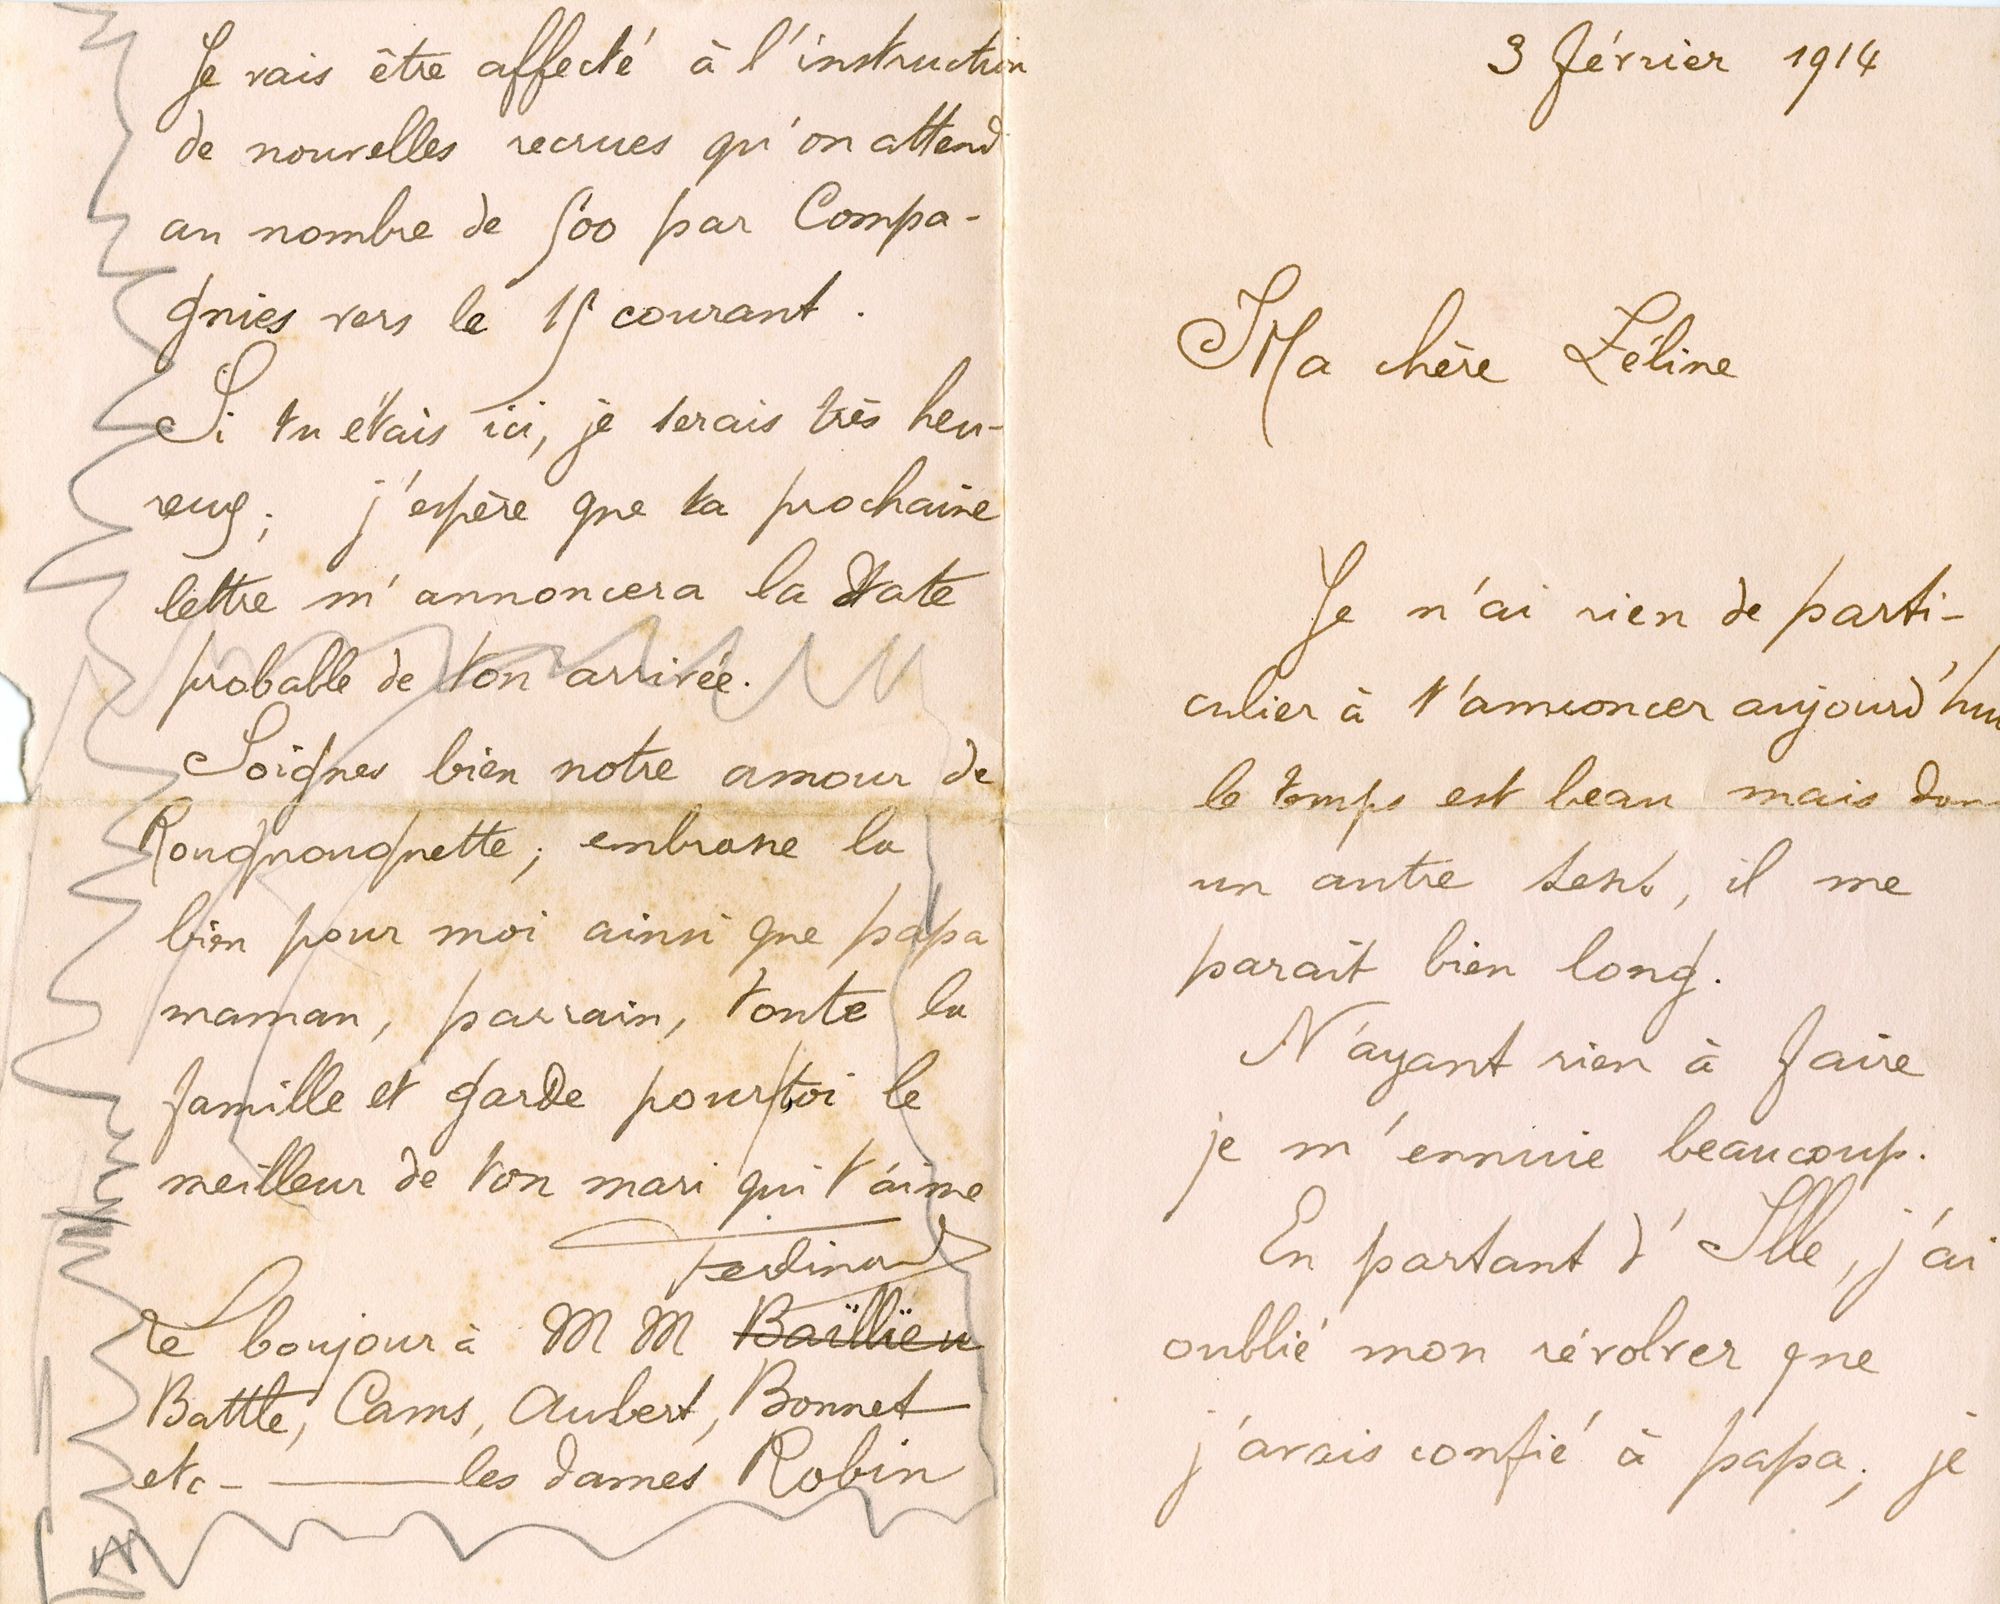 3 février 1914
Ma chère Zéline
Je n'ai rien de parti-
culier à t'annoncer aujourd'hui
le temps est beau mais dans
un autre sens, il me
parait bien long.
N'ayant rien à faire
je m'ennuie beaucoup.
En partant d'Ille, j'ai
oublié mon révolver que
j'avais confié à papa; je
Je vais être affecté à l'instruction
de nouvelles recrues qu'on attend
au nombre de 500 par Compa-
gnies vers le 15 courant.
Si tu étais ici, je serais très heu-
reux; j'espère que ta prochaine
lettre m'annoncera la date
probable de ton arrivée.
Soignes bien notre amour de
Rougnougnette; embrasse la
bien pour moi ainsi que papa
maman, parrain, toute la
famille et garde pour toi le
meilleur de ton mari qui t'aime
Ferdinand
Le bonjour à MM Baïllïeu
Battle, Cams, Aubert, Bonnet
etc - les dames Robin